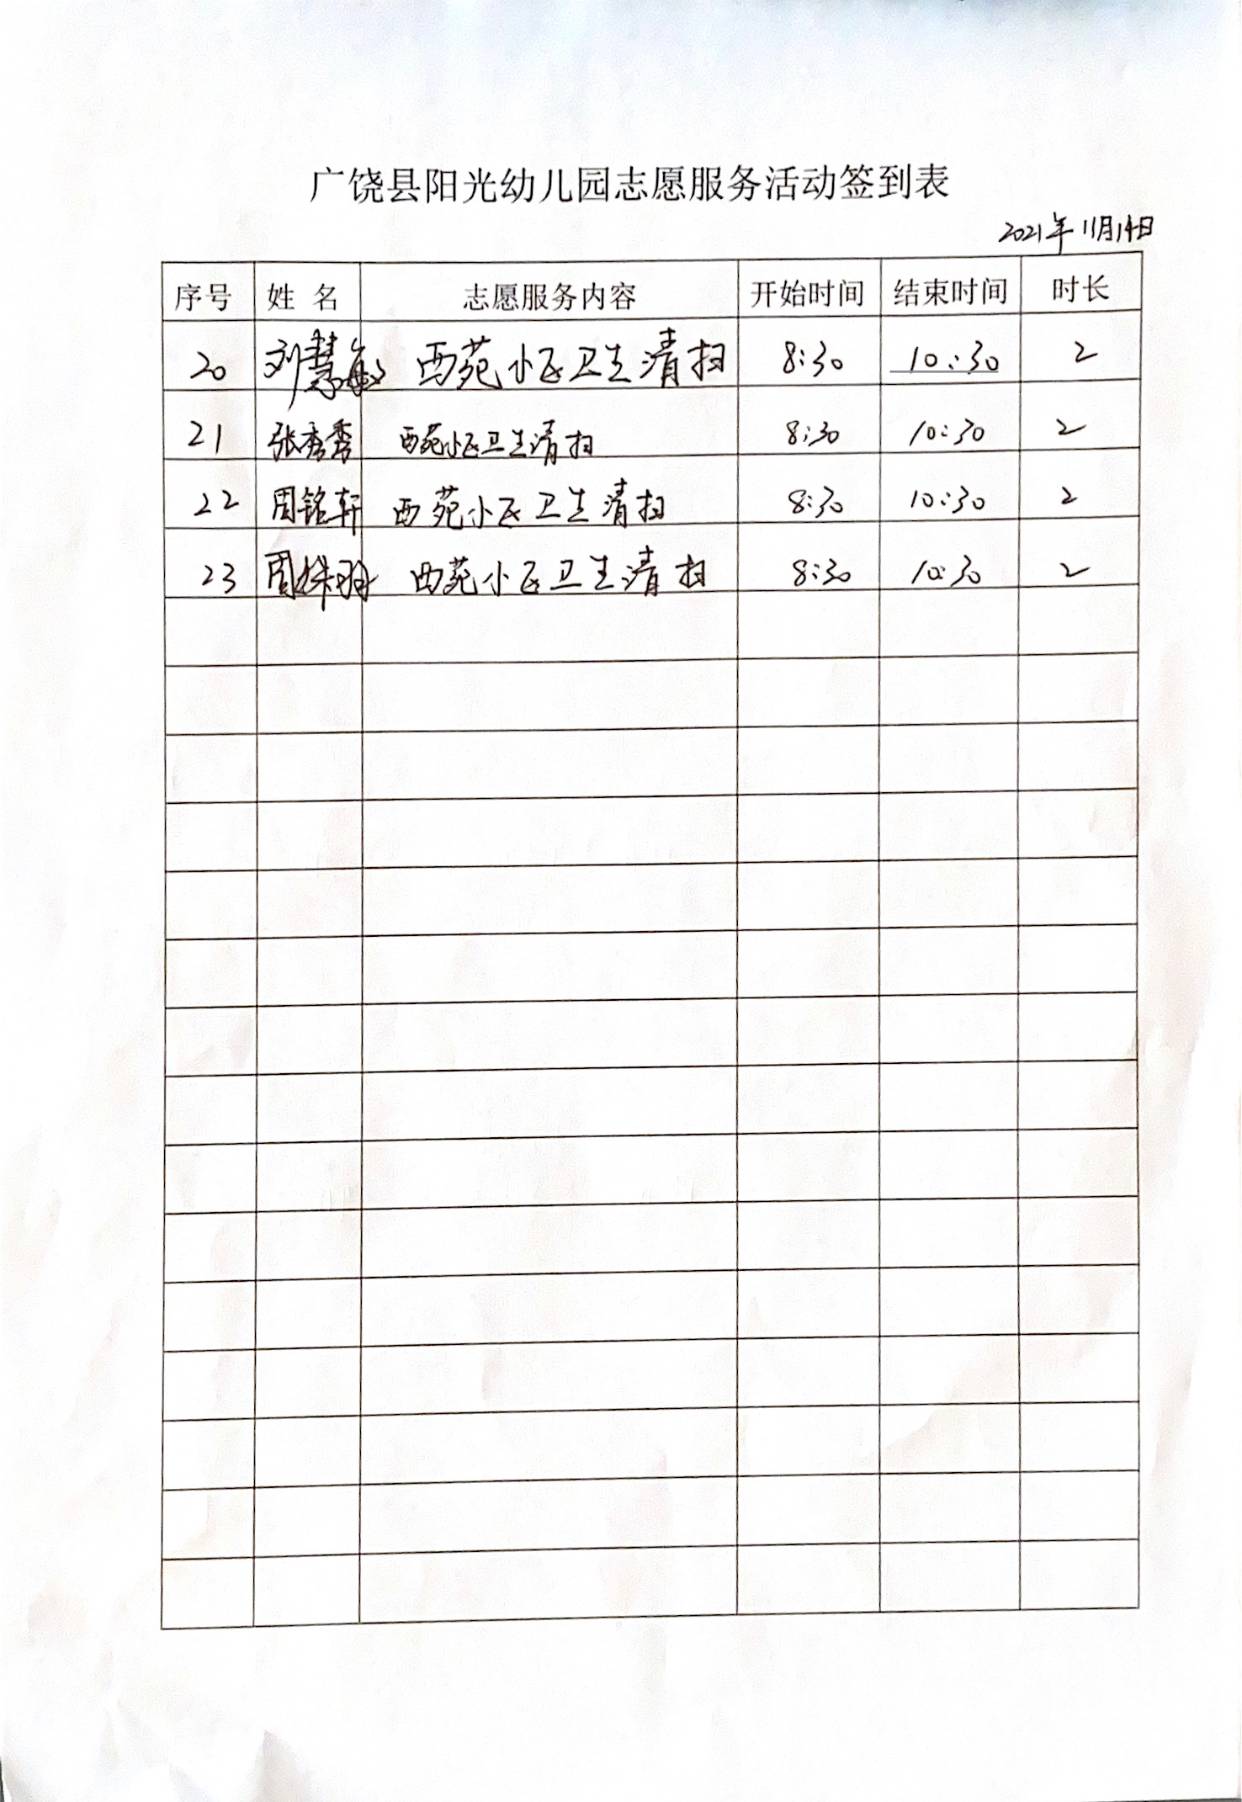 广饶县阳光幼儿园志愿服务活动签到表
2021年11月14日
序号 姓名 志愿服务内容 开始时间 结束时间 时长
20 刘慧敏 西苑小区卫生清扫 8:30 10:30 2
21 张秀秀 西苑小区卫生清扫 8:30 10:30 2
22 周铭轩 西苑小区卫生清扫 8:30 10:30 2
23 周姝羽 西苑小区卫生清扫 8:30 10:30 2